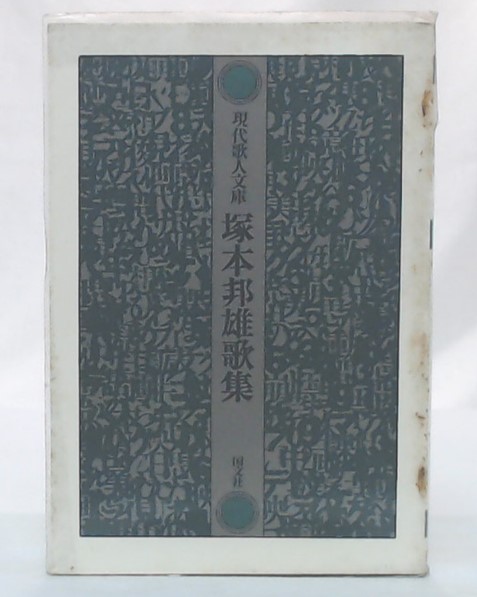 現代歌人文庫
塚本邦雄歌集
国文社